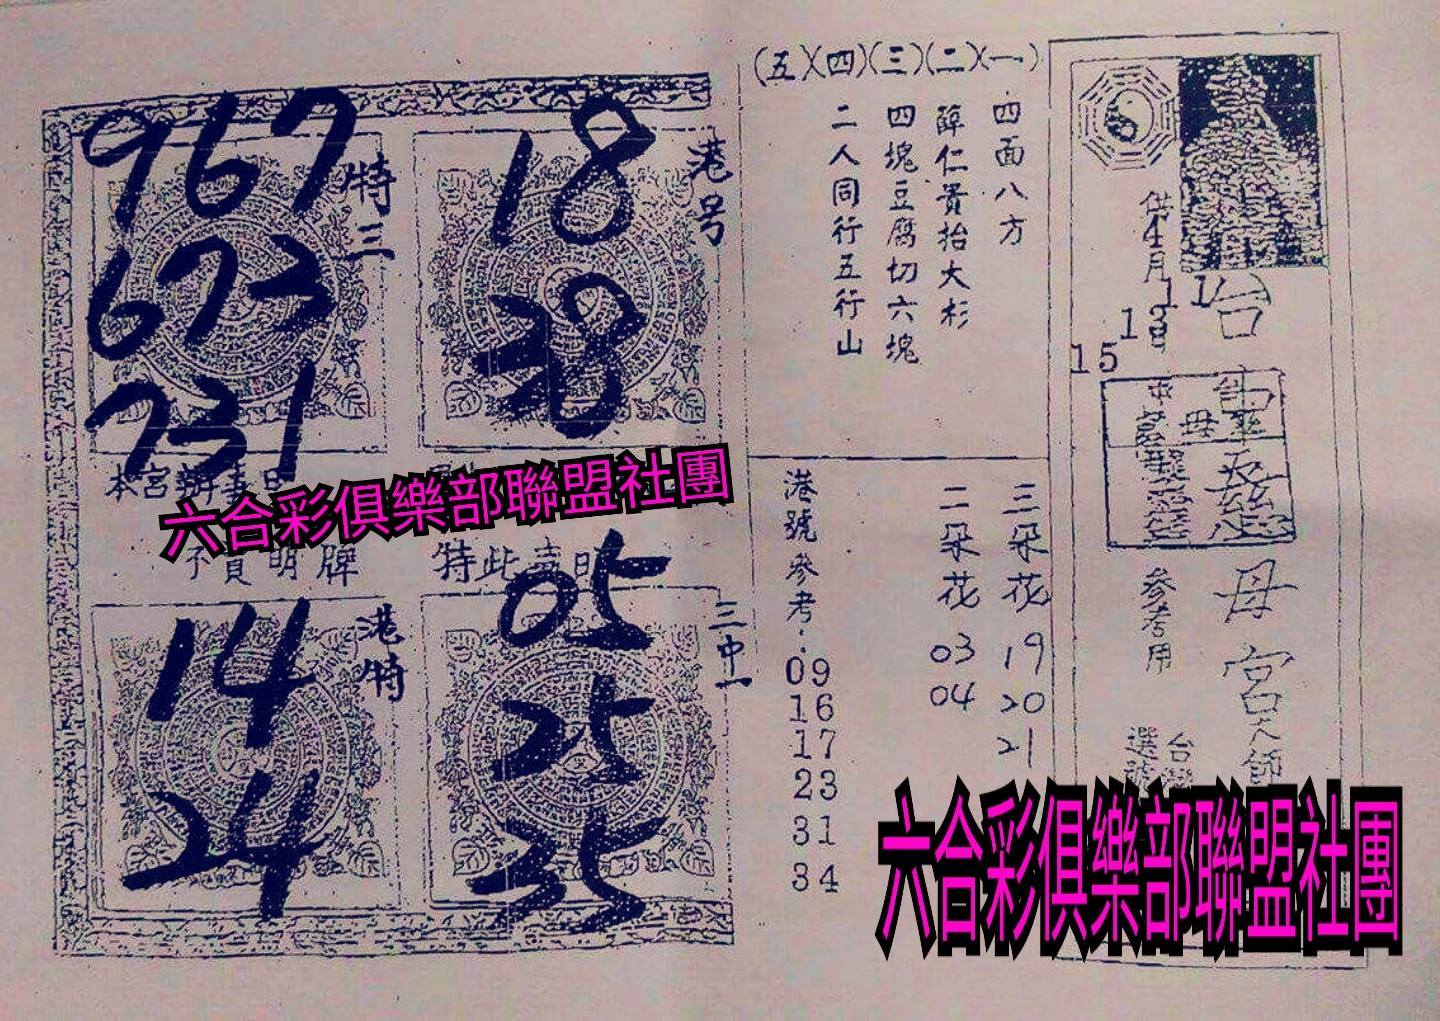 (五)(四)(三)(二)(一)
四面八方
薛仁貴抬大杉
四塊豆腐切六塊
二人同行五行山
967
673
731
特三
18
38
港号
本宮辦事
六合彩俱樂部聯盟社團
不賣明牌
特此
14
24
港特
05
25
35
三中一
三朵花
19
20
21
二朵花
03
04
港號參考:
09
16
17
23
31
34
供
月
11
13日
15
台
母宮天師
參考用
選
台
六合彩俱樂部聯盟社團